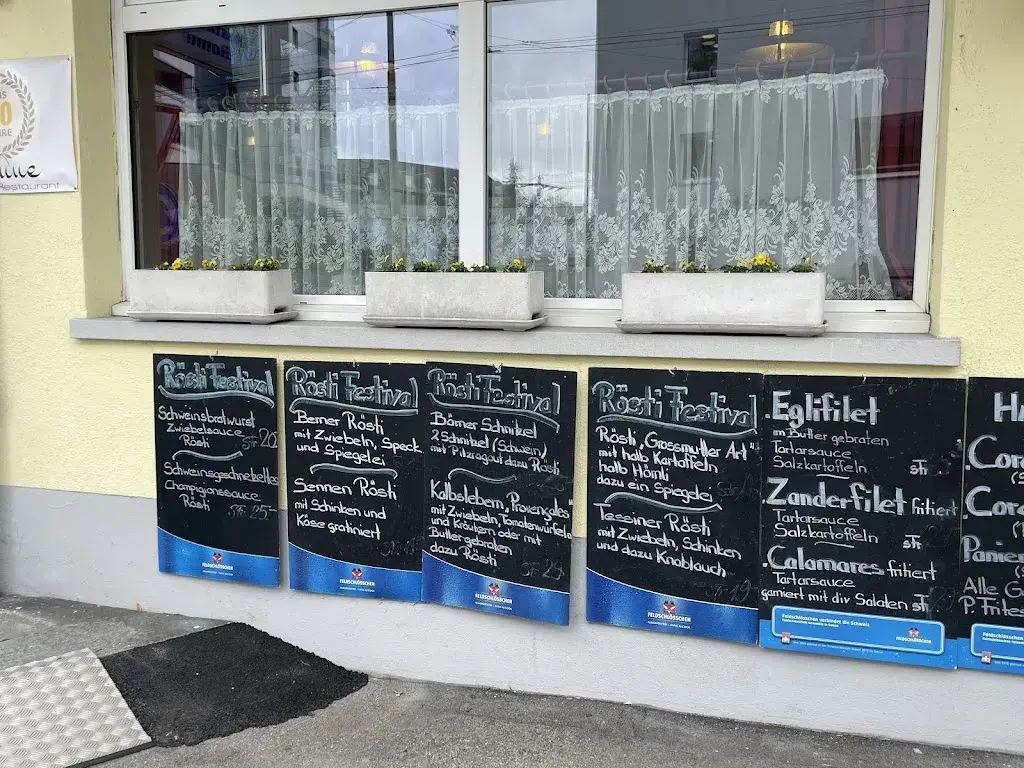 Restaurant
Rösti Festival
Schweinsbratwurst
Zwiebelsauce
Rösti
Sfr. 20.
Schweinsgeschnetzeltes
Championssauce
Rösti
Sfr. 25.-
FELDSCHLÖSSCHEN
Rösti Festival
Berner Rösti
mit Zwiebeln, Speck
und Spiegelei
Sennen Rösti
mit Schinken und
Käse gratiniert
FELDSCHLÖSSCHEN
Rösti Festival
Börner Schnitzel
2 Schnitzel (Schwein)
mit Pilzragout dazu Rösti
Kalbslebern „Provençales"
mit Zwiebeln, Tomatenwürfeln
und Kräutern oder mit
Butter gebraten
dazu Rösti
Sfr. 29.
FELDSCHLÖSSCHEN
Rösti Festival
Rösti „Grossmutter Art"
mit halb Kartoffeln
halb Hörnli
dazu ein Spiegelei
Tessiner Rösti
mit Zwiebeln, Schinken
und dazu Knoblauch
Sfr. 19
FELDSCHLÖSSCHEN
.Eglifilet
im Butter gebraten
Tartarsauce
Salzkartoffeln sfr
.Zanderfilet fritiert
Tartarsauce
Salzkartoffeln sfr
.Calamares fritiert
Tartarsauce
garniert mit div Salaten sfr
Feldschlösschen verbindet die Schweiz
FELDSCHLÖSSCHEN
Alle G
P. Frites
Feldschlösschen